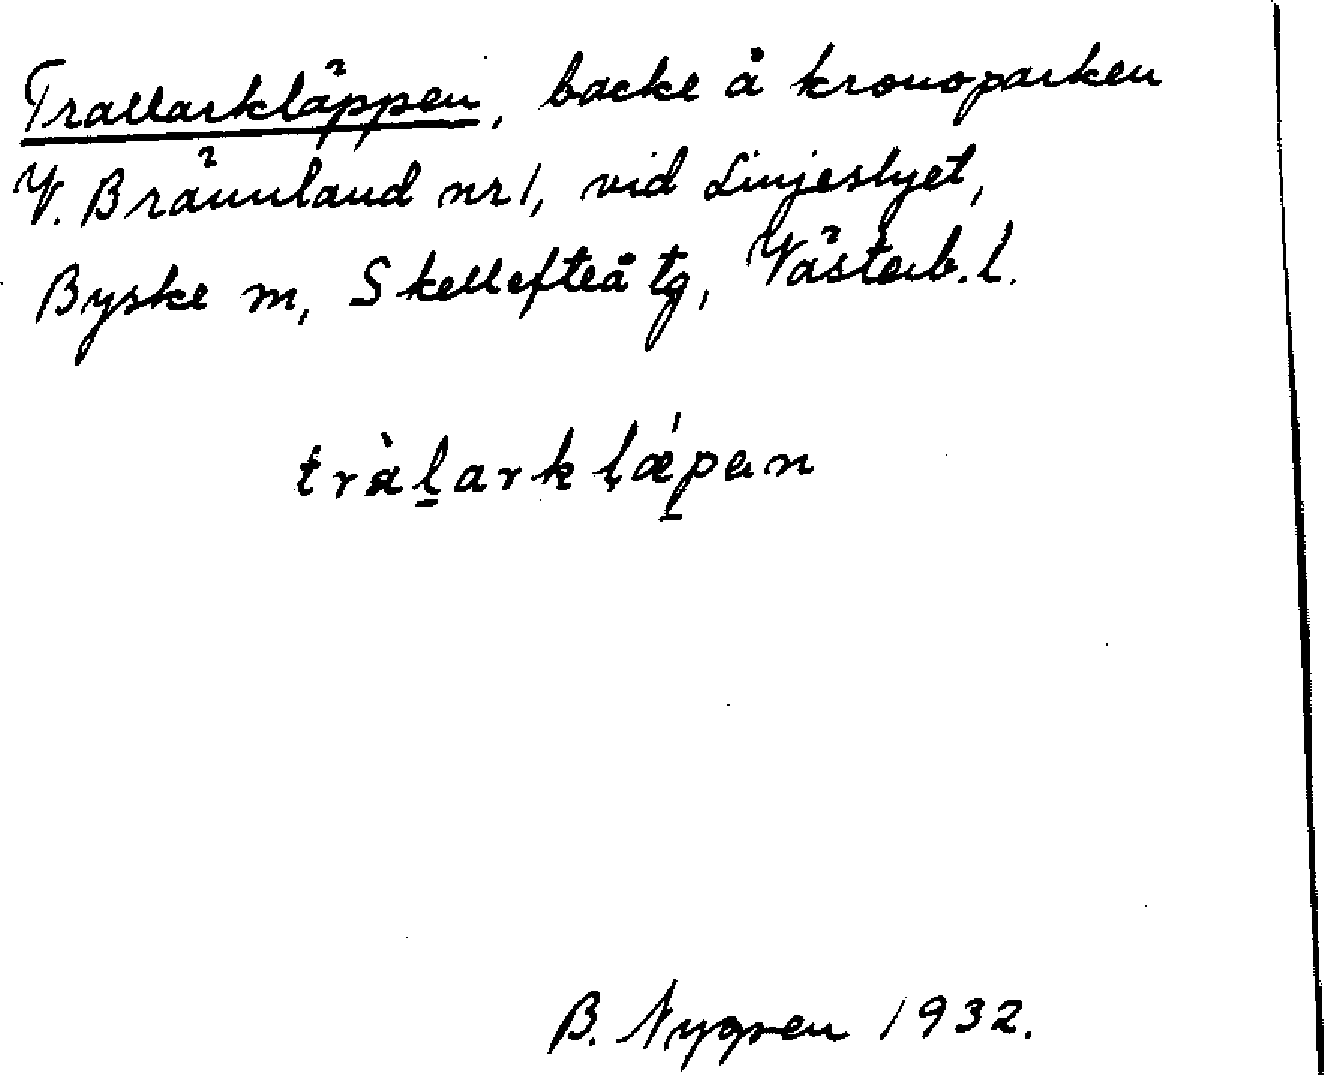 Trallarkläppen, backe å kronoparken
V. Brännland nr 1, vid Linjeslyet,
Byske m, Skellefteå tg, Västerb. l.
tràl̠arkḷǽp̠an
B. Nygren 1932.